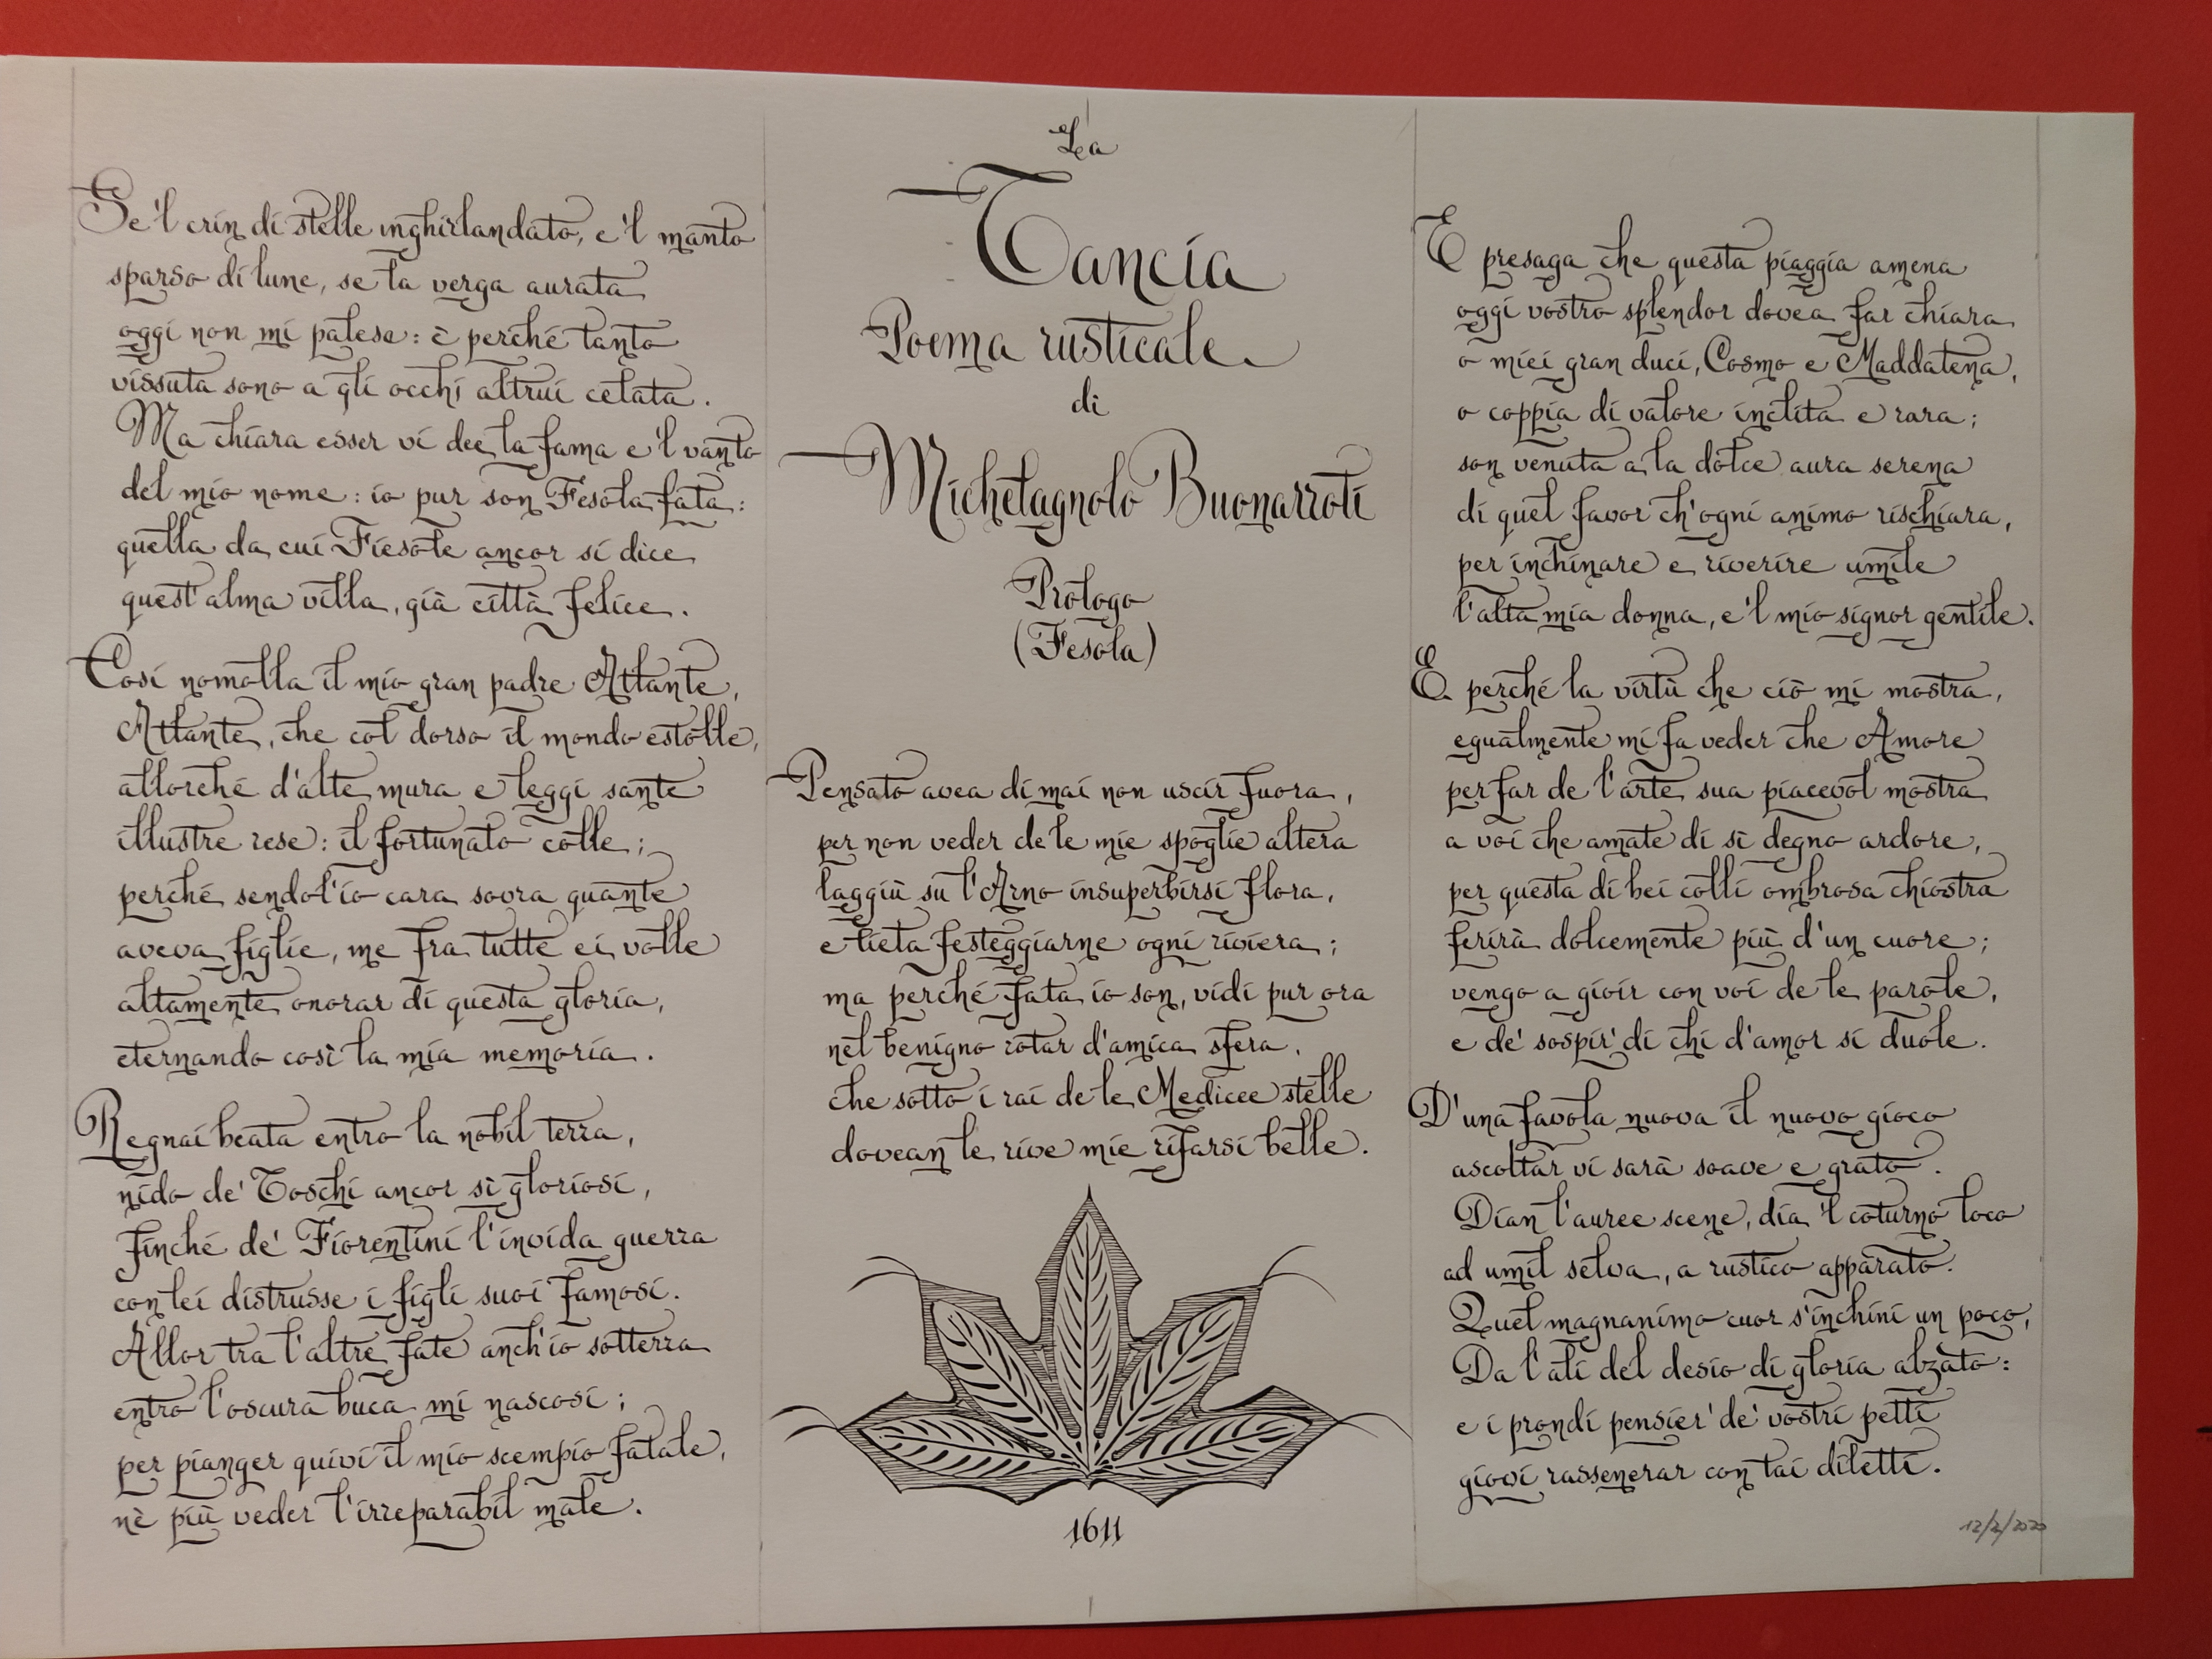 Se 'l crin di stelle inghirlandato, e 'l manto
sparso di lune, se la verga aurata
oggi non mi palesa: è perché tanto
vissuta sono a gli occhi altrui celata.
Ma chiara esser vi dee la fama e 'l vanto
del mio nome: io pur son Fesola fata:
quella da cui Fiesole ancor si dice
quest'alma villa, già città felice.
Così nomolla il mio gran padre Atlante,
Atlante, che col dorso il mondo estolle,
allorché d'alte mura e leggi sante
illustre rese: il fortunato colle;
perché sendol'io cara sovra quante
aveva figlie, me fra tutte ei volle
altamente onorar di questa gloria,
eternando così la mia memoria.
Regnai beata entro la nobil terra,
nido de' Toschi ancor sì gloriosi,
finché de' Fiorentini l'invida guerra
con lei distrusse i figli suoi famosi.
Allor tra l'altre fate anch'io sotterra
entro l'oscura buca mi nascosi;
per pianger quivi il mio scempio fatale,
nè più veder l'irreparabil male.
La
Tancia
Poema rusticale
di
Michelagnolo Buonarroti
Prologo
(Fesola)
Pensato avea di mai non uscir fuora,
per non veder de le mie spoglie altera
laggiù su l'Arno insuperbirsi Flora,
e lieta festeggiarne ogni riviera;
ma perché fata io son, vidi pur ora
nel benigno rotar d'amica sfera,
che sotto i rai de le Medicee stelle
dovean le rive mie rifarsi belle.
1611
E presaga che questa piaggia amena
oggi vostro splendor dovea far chiara
o miei gran duci, Cosmo e Maddalena,
o coppia di valore inclita e rara;
son venuta a la dolce aura serena
di quel favor ch'ogni animo rischiara,
per inchinare e riverire umile
l'alta mia donna, e 'l mio signor gentile.
E perché la virtù che ciò mi mostra,
egualmente mi fa veder che Amore
per far de l'arte sua piacevol mostra
a voi che amate di sì degno ardore,
per questa di bei colli ombrosa chiostra
ferirà dolcemente più d'un cuore;
vengo a gioir con voi de le parole,
e de' sospir' di chi d'amor si duole.
D'una favola nuova il nuovo gioco
ascoltar vi sarà soave e grato.
Dian l'auree scene, dia 'l coturno loco
ad umil selva, a rustico apparato.
Quel magnanimo cuor s'inchini un poco,
Da l'ali del desio di gloria alzato:
e i prondi pensier' de' vostri petti
giovi rassenerar con tai diletti.
12/2/2020